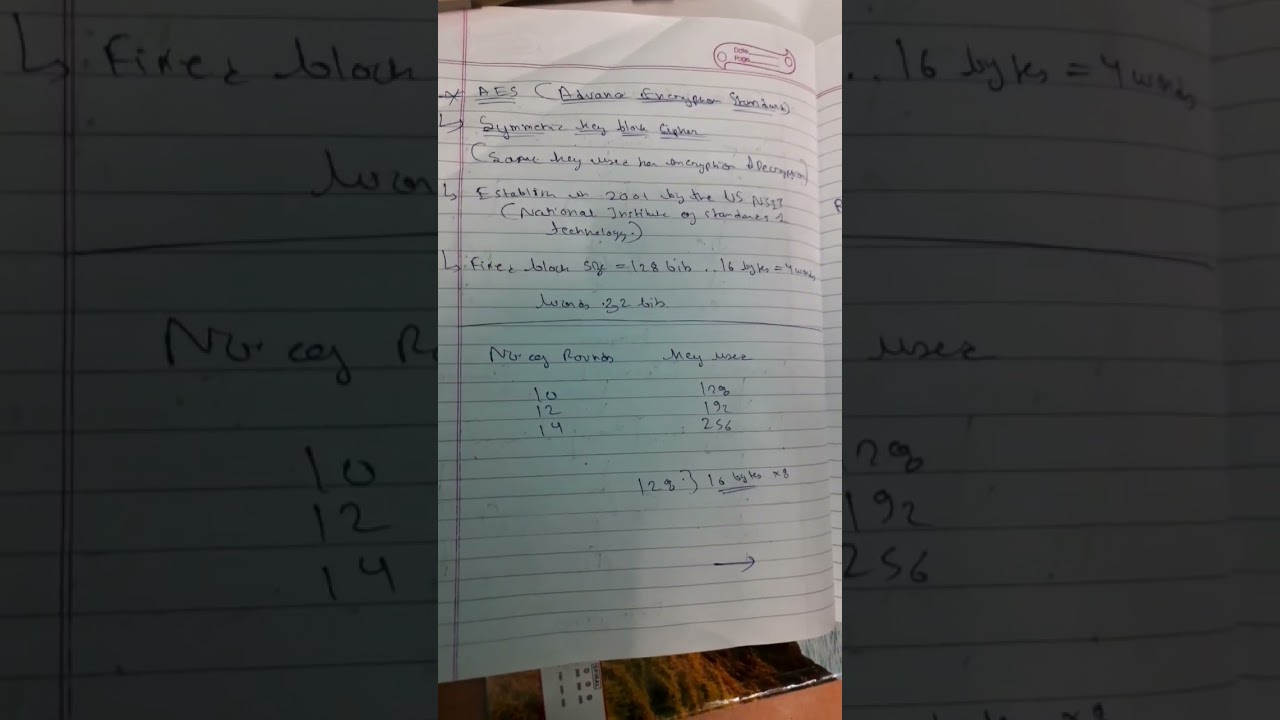 Date
Page
AES (Advance Encryption Standard)
Symmetric key block Cipher
(Same key used for encryption & Decryption)
Establish in 2001 by the US NSIT
(National Institute of standards &
technology.)
Fixed block size = 128 bits .. 16 bytes = 4 words
Words .32 bits
No. of Rounds Key used
10 128
12 192
14 256
128 } 16 bytes × 8
→